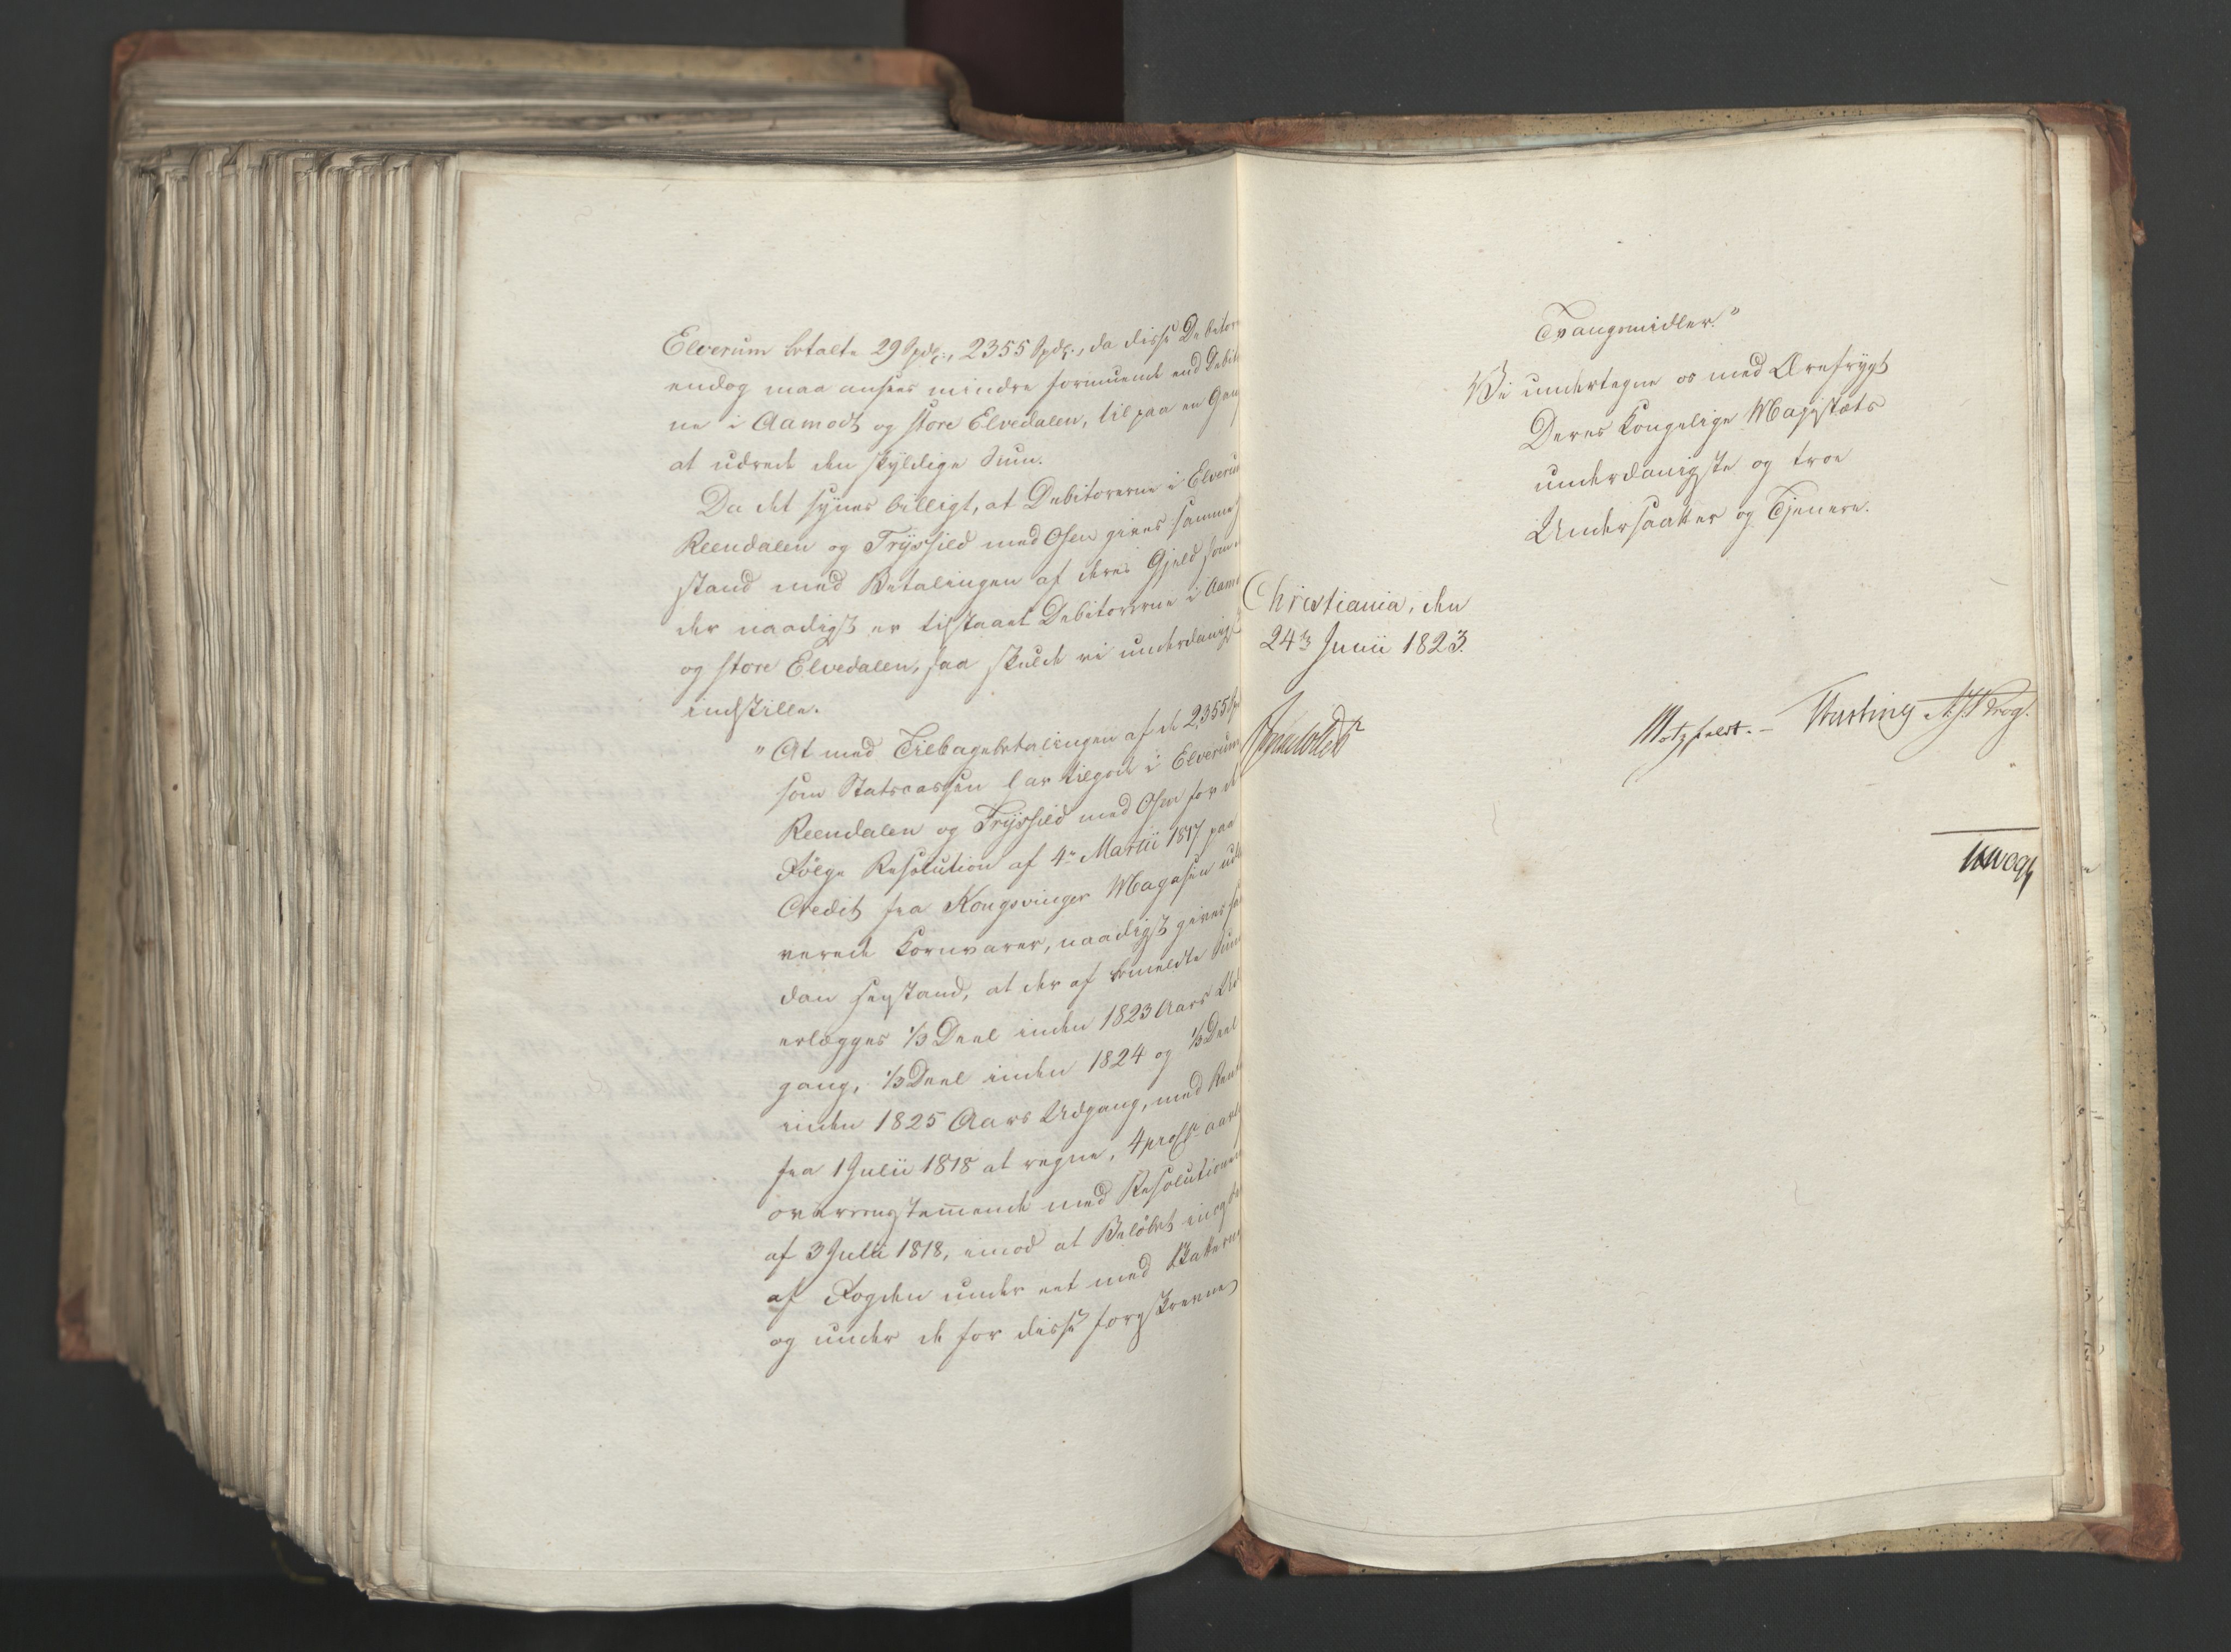 Elverum betalte 29 Spdlr., 2355 Spdlr., da disse Debitore
endog maa ansees mindre formuende end Debito
ne i Aamodt og store Elvedalen, til paa en Gang
at udrede den skyldige Sum.
Da det synes billigt, at Debitorerne i Elverum
Reendalen og Trysild med Osen gives samme
stand med Betalingen af deres Gjeld som
der naadigst er tilstaaet Debitorerne i Aamo
og store Elvedalen, saa skulde vi underdanigst
indstille.
"At med Tilbagebetalingen af de 2355 Sp
som Statscassen har tilgode i Elverum
Reendalen og Trysild med Osen for de
Følge Resolution af 4de Martii 1817 paa
Credit fra Kongsvinger Magasin udle
verede Kornvarer, naadigst gives saa
dan Henstand, at der af bemeldte Sum
erlægges 1/3 Deel inden 1823 Aars Ud
gang, 1/3 Deel inden 1824 og 1/3 Deel
inden 1825 Aars Udgang, med Rente
fra 1 Julii 1818 at regne, 4 proCt aarl
overeensstemmende med Resolutionen
af 3 Julii 1818, imod at Beløbet
af Fogden under eet med Skatterne
og under de for disse foreskrevne
Tvangsmidler."
Vi undertegne os med Ærefrygt
Deres Kongelige Majestæts
underdanigste og troe
Undersaatter og Tjenere.
Christiania, den
24de Junii 1823.
Motzfeldt. Krog.